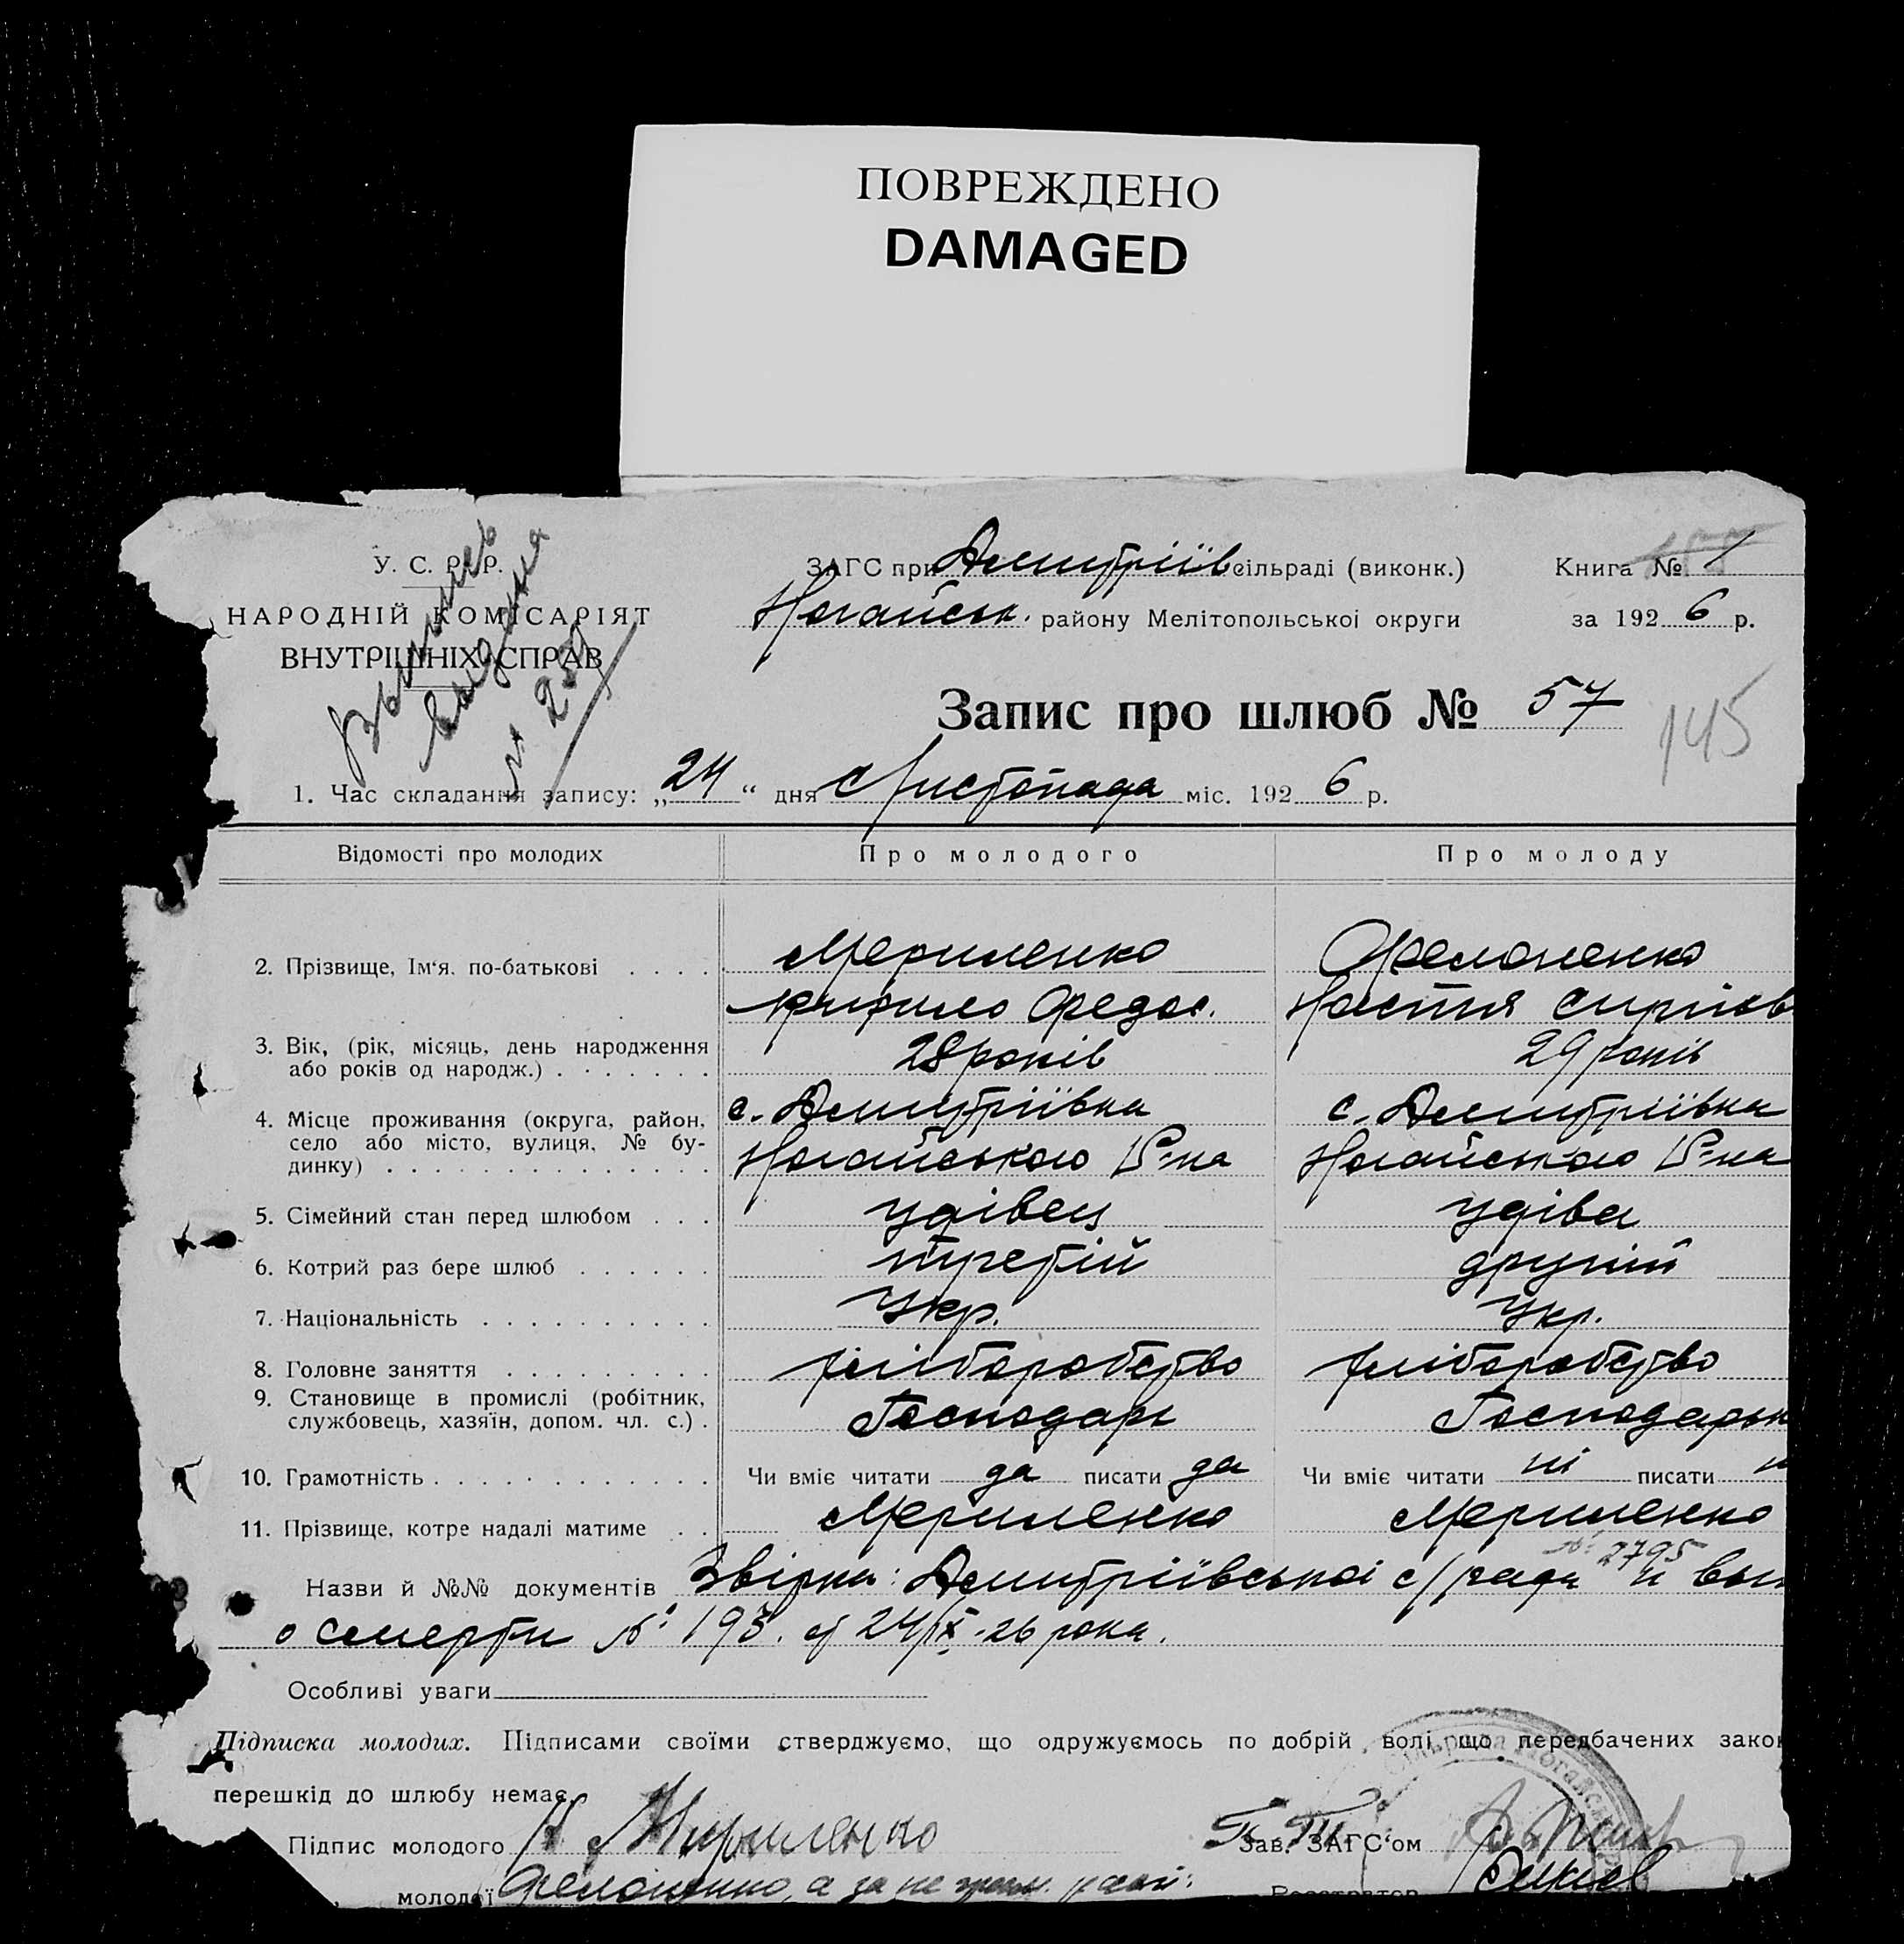 ПОВРЕЖДЕНО
DAMAGED
У. С. Р. Р.
НАРОДНІЙ КОМІСАРІЯТ
ВНУТРІШНІХ СПРАВ
ЗАГС при Дмитріїв сільраді (виконк.)
Ногайськ. району Мелітопольської округи
Книга № 1
за 1926 р.
Запис про шлюб № 57
145
1. Час складання запису: „24“ дня Листопада міс. 1926 р.
Відомості про молодих Про молодого Про молоду
2. Прізвище, Ім'я. по-батькові . . . . Мериленко
Кирило Федос. Настя
3. Вік, (рік, місяць, день народження 28 років 29 років
або років од народж.) . . . . . . .
4. Місце проживання (округа, район, с. Дмитріївка с. Дмитріївка
село або місто, вулиця, № бу- Ногайського Р-на Ногайського Р-на
динку) . . . . . . . . . . . . . .
5. Сімейний стан перед шлюбом . . . удівец удіва
6. Котрий раз бере шлюб . . . . . . третій другий
7. Національність . . . . . . . . . . Укр. Укр.
8. Головне заняття . . . . . . . . . хліборобство хліборобство
9. Становище в промислі (робітник, Господарь Господарьк
службовець, хазяїн, допом. чл. с.) .
10. Грамотність . . . . . . . . . . . . Чи вміє читати да писати да Чи вміє читати ні писати н
11. Прізвище, котре надалі матиме . . Мериленко Мериленко
№ 2795
Назви й №№ документів Звірка: Дмитріївської с/рада и вып
о смерти № 193. от 24/IX-26 рока.
Особливі уваги
Підписка молодих. Підписами своїми стверджуємо, що одружуємось по добрій волі, що передбачених закон
перешкід до шлюбу немає.
Підпис молодого К Мириленко Зав. ЗАГС'ом
молодої а за не грам. Реєстратор